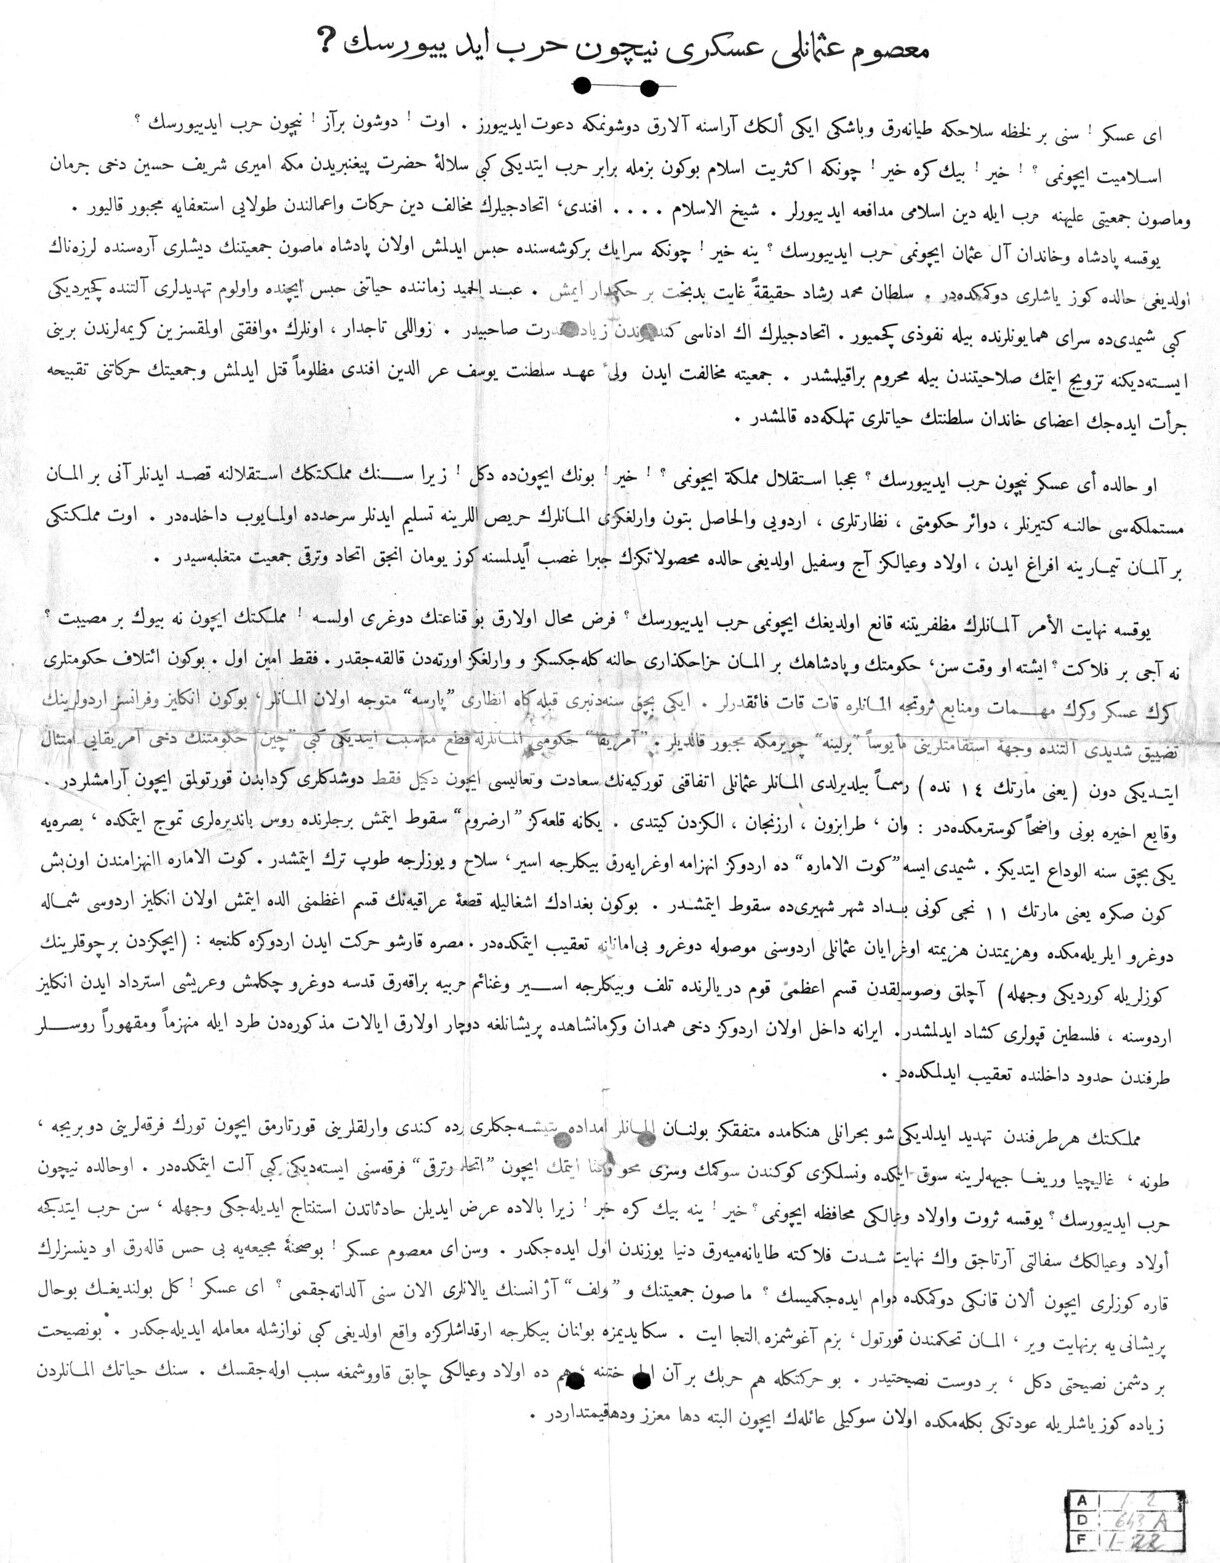 معصوم عثمانلی عسكری نیچون حرب اید ییورسك ?
ای عسكر ! سنی بر لحظه سلاحكه طیانه‌رق وباشكی ایكی ألكك آراسنه آلارق دوشونمكه دعوت ایدییورز . اوت ! دوشون برآز ! نیچون حرب ایدییورسك ؟
اسلامیت ایچونمی ؟ ! خیر ! بیك كره خیر ! چونكه اكثریت اسلام بوكون بزمله برابر حرب ایتدیكی كبی سلالهٔ حضرت پیغنبریدن مكه امیری شریف حسین دخی جرمان
وماصون جمعیتی علیهنه حرب ایله دین اسلامی مدافعه اید ییورلر . شیخ الاسلام .... افندی، اتحادجیلرك مخالف دین حركات واعمالندن طولایی استعفایه مجبور قالیور .
یوقسه پادشاه وخاندان آل عثمان ایچونمی حرب ایدییورسك ؟ ینه خیر ! چونكه سرایك بركوشه‌سنده حبس ایدلمش اولان پادشاه ماصون جمعیتنك دیشلری آره‌سنده لرزه‌ناك
اولدیغی حالده كوز یاشلری دوكمكده‌در . سلطان محمد رشاد حقیقةً غایت بدبخت بر حكمدار ایمش . عبد الحمید زماننده حیاتنی حبس ایچنده واولوم تهدیدلری آلتنده كچیردیكی
كبی شیمدی‌ده سرای همایونلرنده بیله نفوذی كچمیور . اتحادجیلرك اك ادناسی كندیسندن زیاده قدرت صاحبیدر . زواللی تاجدار ، اونلرك موافقتی اولمقسزین كریمه‌لرندن برینی
ایسته‌دیكنه تزویج ایتمك صلاحیتندن بیله محروم براقیلمشدر . جمعیته مخالفت ایدن ولیٔ عهد سلطنت یوسف عز الدین افندی مظلوماً قتل ایدلمش وجمعیتك حركاتنی تقبیحه
جرأت ایده‌جك اعضای خاندان سلطنتك حیاتلری تهلكه‌ده قالمشدر .
او حالده أی عسكر نیچون حرب ایدییورسك ؟ عجبا استقلال مملكة ایچونمی ؟ ! خیر ! بونك ایچون‌ده دكل ! زیرا سنك مملكتكك استقلالنه قصد ایدنلر آنی بر المان
مستملكه‌سی حالنه كتیرنلر ، دوائر حكومتی ، نظارتلری ، اردویی والحاصل بتون وارلغكزی المانلرك حریص اللرینه تسلیم ایدنلر سرحدده اولمایوب داخلده‌در . اوت مملكتكی
بر آلمان تیمارینه افراغ ایدن ، اولاد وعیالكز آج وسفیل اولدیغی حالده محصولاتكزك جبرا غصب آیدلمسنه كوز یومان انجق اتحاد وترقی جمعیت متغلبه‌سیدر .
یوقسه نهایت الأمر آلمانلرك مظفریتنه قانع اولدیغك ایچونمی حرب ایدییورسك ؟ فرض محال اولارق بو قناعتك دوغری اولسه ! مملكتك ایچون نه بیوك بر مصیبت ؟
نه آجی بر فلاكت ؟ ایشته او وقت سن، حكومتك و پادشاهك بر المان خزاحكذاری حالنه كله‌جكسكز و وارلغكز اورته‌دن قالقه‌جقدر . فقط امین اول . بوكون ائتلاف حكومتلری
كرك عسكر وكرك مهمات ومنابع ثروتجه المانلره قات قات فائقدرلر . ایكی بچق سنه‌دنبری قبله‌گاه انظاری ”پارسه“ متوجه اولان المانلر، بوكون انكلیز وفرانسز اردولرینك
تضییق شدیدی آلتنده وجهٔ استقامتلرینی مأیوساً ”برلینه“ چویرمكه مجبور قالدیلر . ”آمریقا“ حكومتی المانلرله قطع مناسبت ایتدیكی كبی ”چین“ حكومتنك دخی آمریقایی امتثال
ایتدیكی دون (یعنی مارتك ١٤ نده) رسماً بیلدیرلدی المانلر عثمانلی اتفاقنی توركیه‌نك سعادت وتعالیسی ایچون دكیل فقط دوشدكلری كردابدن قورتولمق ایچون آرامشلردر .
وقایع اخیره بونی واضحاً كوسترمكده‌در : وان ، طرابزون ، ارزنجان ، الكزدن كیتدی . یكانه قلعه‌كز ”ارضروم“ سقوط ایتمش برجلرنده روس باندیره‌لری تموج ایتمكده ، بصره‌یه
یكی بچق سنه الوداع ایتدیكز . شیمدی ایسه ”كوت الاماره“ ده اردوكز انهزامه اوغرایه‌رق بیكلرجه اسیر، سلاح و یوزلرجه طوپ ترك ایتمشدر . كوت الاماره انهزامندن اون‌بش
كون صكره یعنی مارتك ١١ نجی كونی بغداد شهر شهیری‌ده سقوط ایتمشدر . بوكون بغدادك اشغالیله قطعهٔ عراقیه‌نك قسم اعظمنی الده ایتمش اولان انكلیز اردوسی شماله
دوغرو ایلریله‌مكده وهزیمتدن هزیمته اوغرایان عثمانلی اردوسنی موصوله دوغرو بی‌امانانه تعقیب ایتمكده‌در . مصره قارشو حركت ایدن اردوكزه كلنجه : (ایچكزدن برچوقلرینك
كوزلریله كوردیكی وجهله) آچلق وصوسزلقدن قسم اعظمیٔ قوم دریالرنده تلف وبیكلرجه اسیر وغنائم حربیه براقه‌رق قدسه دوغرو چكلمش وعریشی استرداد ایدن انكلیز
اردوسنه ، فلسطین قپولری كشاد ایدلمشدر. ایرانه داخل اولان اردوكز دخی همدان وكرمانشاهده پریشانلغه دوچار اولارق ایالات مذكوره‌دن طرد ایله منهزماً ومقهوراً روسلر
طرفندن حدود داخلنده تعقیب ایدلمكده‌در .
مملكتك هرطرفندن تهدید ایدلدیكی شو بحرانلی هنكامده متفقكز بولنان المانلر امداده یتیشه‌جكلری یرده كندی وارلقلرینی قورتارمق ایچون تورك فرقه‌لرینی دوبریجه ،
طونه ، غالیچیا وریغا جبهه‌لرینه سوق ایتمكده ونسلكزی كوكندن سوكمك وسزی محو وافنا ایتمك ایچون ”اتحاد وترقی“ فرقه‌سنی ایسته‌دیكی كبی آلت ایتمكده‌در . اوحالده نیچون
حرب ایدییورسك ؟ یوقسه ثروت واولاد وعیالكی محافظه ایچونمی ؟ خیر ! ینه بیك كره خیر ! زیرا بالاده عرض ایدیلن حادثاتدن استنتاج ایدیله‌جكی وجهله ، سن حرب ایتدكجه
أولاد وعیالكك سفالتی آرتاجق واك نهایت شدت فلاكته طایانه‌میه‌رق دنیا یوزندن اول ایده‌جكدر . وسن‌ای معصوم عسكر ! بوصحنهٔ مجیعه‌یه بی حس قاله‌رق او دینسزلرك
قاره كوزلری ایچون ألان قانكی دوكمكده دوام ایده‌جكمیسك ؟ ماصون جمعیتنك و ”ولف“ آژانسنك یالانلری الان سنی آلداته‌جقمی ؟ ای عسكر ! كل بولندیغك بوحال
پریشانی‌یه برنهایت ویر ، المان تحكمندن قورتول ، بزم آغوشمزه التجا ایت . سكا یدیمزه بولنان بیكلرجه ارقداشلركزه واقع اولدیغی كبی نوازشله معامله ایدیله‌جكدر . بونصیحت
بر دشمن نصیحتی دكل ، بر دوست نصیحتیدر . بو حركتكله هم حربك بر آن اول ختمنه ، هم ده اولاد وعیالكی چابق قاووشمغه سبب اوله‌جقسك . سنك حیاتك المانلردن
زیاده كوز یاشلریله عودتكی بكله‌مكده اولان سوكیلی عائله‌ك ایچون البته دها معزز ودهاقیمتداردر .
A | 1 2
D : 643 A
F | 1-22